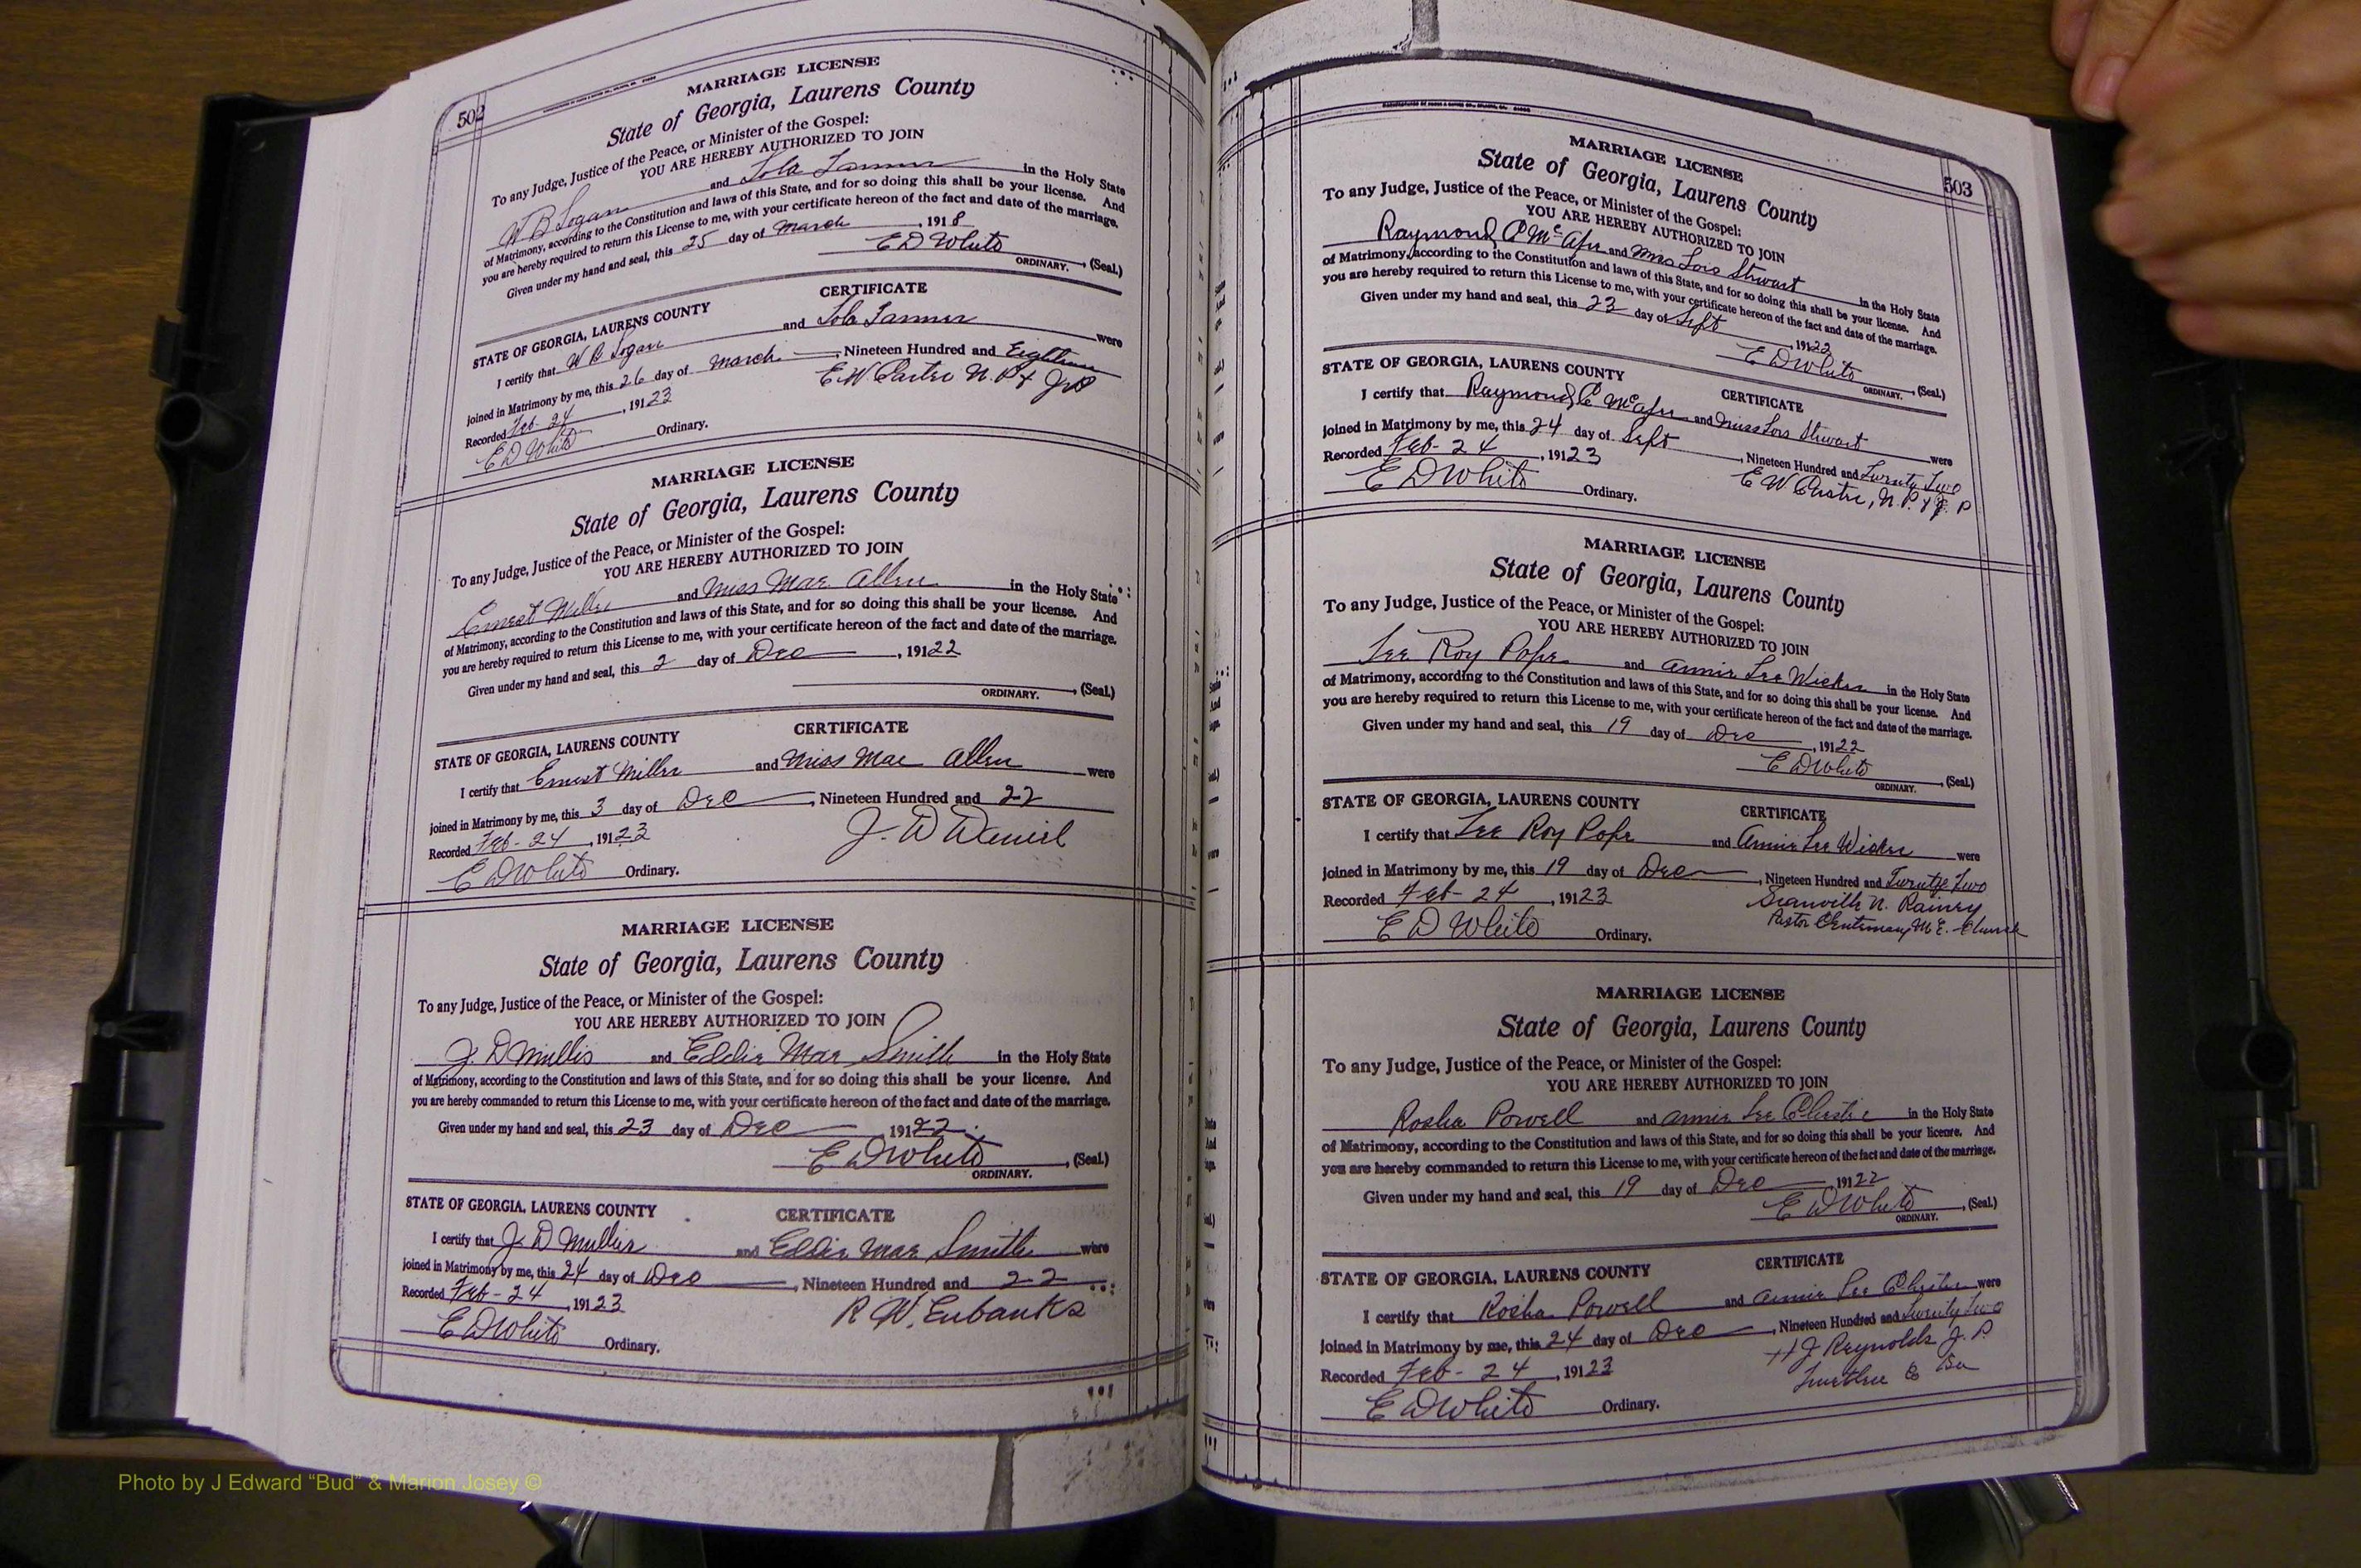 502
MARRIAGE LICENSE
State of Georgia, Laurens County
To any Judge, Justice of the Peace, or Minister of the Gospel:
YOU ARE HEREBY AUTHORIZED TO JOIN
W B Logan and Lola Tanner in the Holy State
of Matrimony, according to the Constitution and laws of this State, and for so doing this shall be your license. And
you are hereby required to return this License to me, with your certificate hereon of the fact and date of the marriage.
Given under my hand and seal, this 25 day of March, 1918
E D White, (Seal.)
ORDINARY.
STATE OF GEORGIA, LAURENS COUNTY CERTIFICATE
I certify that W B Logan and Lola Tanner were
joined in Matrimony by me, this 26 day of March, Nineteen Hundred and Eighteen
Recorded Feb-24, 19123 E W N. P & J P
E D White Ordinary.
MARRIAGE LICENSE
State of Georgia, Laurens County
To any Judge, Justice of the Peace, or Minister of the Gospel:
YOU ARE HEREBY AUTHORIZED TO JOIN
Ernest Miller and Miss Mae Allen in the Holy State
of Matrimony, according to the Constitution and laws of this State, and for so doing this shall be your license. And
you are hereby required to return this License to me, with your certificate hereon of the fact and date of the marriage.
Given under my hand and seal, this 2 day of Dec, 19122
, (Seal.)
ORDINARY.
STATE OF GEORGIA, LAURENS COUNTY CERTIFICATE
I certify that Ernest Miller and Miss Mae Allen were
joined in Matrimony by me, this 3 day of Dec, Nineteen Hundred and 22
Recorded Feb-24, 19123 J. W Daniel
E D White Ordinary.
MARRIAGE LICENSE
State of Georgia, Laurens County
To any Judge, Justice of the Peace, or Minister of the Gospel:
YOU ARE HEREBY AUTHORIZED TO JOIN
J. D Mullis and Eddie Mae Smith in the Holy State
of Matrimony, according to the Constitution and laws of this State, and for so doing this shall be your licenre. And
you are hereby commanded to return this License to me, with your certificate hereon of the fact and date of the marriage.
Given under my hand and seal, this 23 day of Dec 19122
E D White, (Seal.)
ORDINARY.
STATE OF GEORGIA, LAURENS COUNTY CERTIFICATE
I certify that J. D Mullis and Eddie Mae Smith were
joined in Matrimony by me, this 24 day of Dec, Nineteen Hundred and 22
Recorded Feb-24, 19123 R W. Eubanks
E D White Ordinary.
503
MARRIAGE LICENSE
State of Georgia, Laurens County
To any Judge, Justice of the Peace, or Minister of the Gospel:
YOU ARE HEREBY AUTHORIZED TO JOIN
Raymond C McAfee and Miss Lois Stewart in the Holy State
of Matrimony, according to the Constitution and laws of this State, and for so doing this shall be your license. And
you are hereby required to return this License to me, with your certificate hereon of the fact and date of the marriage.
Given under my hand and seal, this 23 day of Sept, 19122
E D White, (Seal.)
ORDINARY.
STATE OF GEORGIA, LAURENS COUNTY CERTIFICATE
I certify that Raymond C McAfee and Miss Lois Stewart were
joined in Matrimony by me, this 24 day of Sept, Nineteen Hundred and Twenty Two
Recorded Feb-24, 19123 E W N. P. & J. P
E D White Ordinary.
MARRIAGE LICENSE
State of Georgia, Laurens County
To any Judge, Justice of the Peace, or Minister of the Gospel:
YOU ARE HEREBY AUTHORIZED TO JOIN
Lee Roy Pope and Annie Lee Wicker in the Holy State
of Matrimony, according to the Constitution and laws of this State, and for so doing this shall be your license. And
you are hereby required to return this License to me, with your certificate hereon of the fact and date of the marriage.
Given under my hand and seal, this 19 day of Dec, 19122
E D White, (Seal.)
ORDINARY.
STATE OF GEORGIA, LAURENS COUNTY CERTIFICATE
I certify that Lee Roy Pope and Annie Lee Wicker were
joined in Matrimony by me, this 19 day of Dec, Nineteen Hundred and Twenty Two
Recorded Feb-24, 19123 Granville N. Rainey
E D White Ordinary. Pastor Centenary M. E. Church
MARRIAGE LICENSE
State of Georgia, Laurens County
To any Judge, Justice of the Peace, or Minister of the Gospel:
YOU ARE HEREBY AUTHORIZED TO JOIN
Rosha Powell and Annie Lee in the Holy State
of Matrimony, according to the Constitution and laws of this State, and for so doing this shall be your licenre. And
you are hereby commanded to return this License to me, with your certificate hereon of the fact and date of the marriage.
Given under my hand and seal, this 19 day of Dec, 19122
E D White, (Seal.)
ORDINARY.
STATE OF GEORGIA, LAURENS COUNTY CERTIFICATE
I certify that Rosha Powell and Annie Lee were
joined in Matrimony by me, this 24 day of Dec, Nineteen Hundred and Twenty Two
Recorded Feb-24, 19123 H J Reynolds J. P
E D White Ordinary.
Photo by J Edward “Bud” & Marion Josey ©